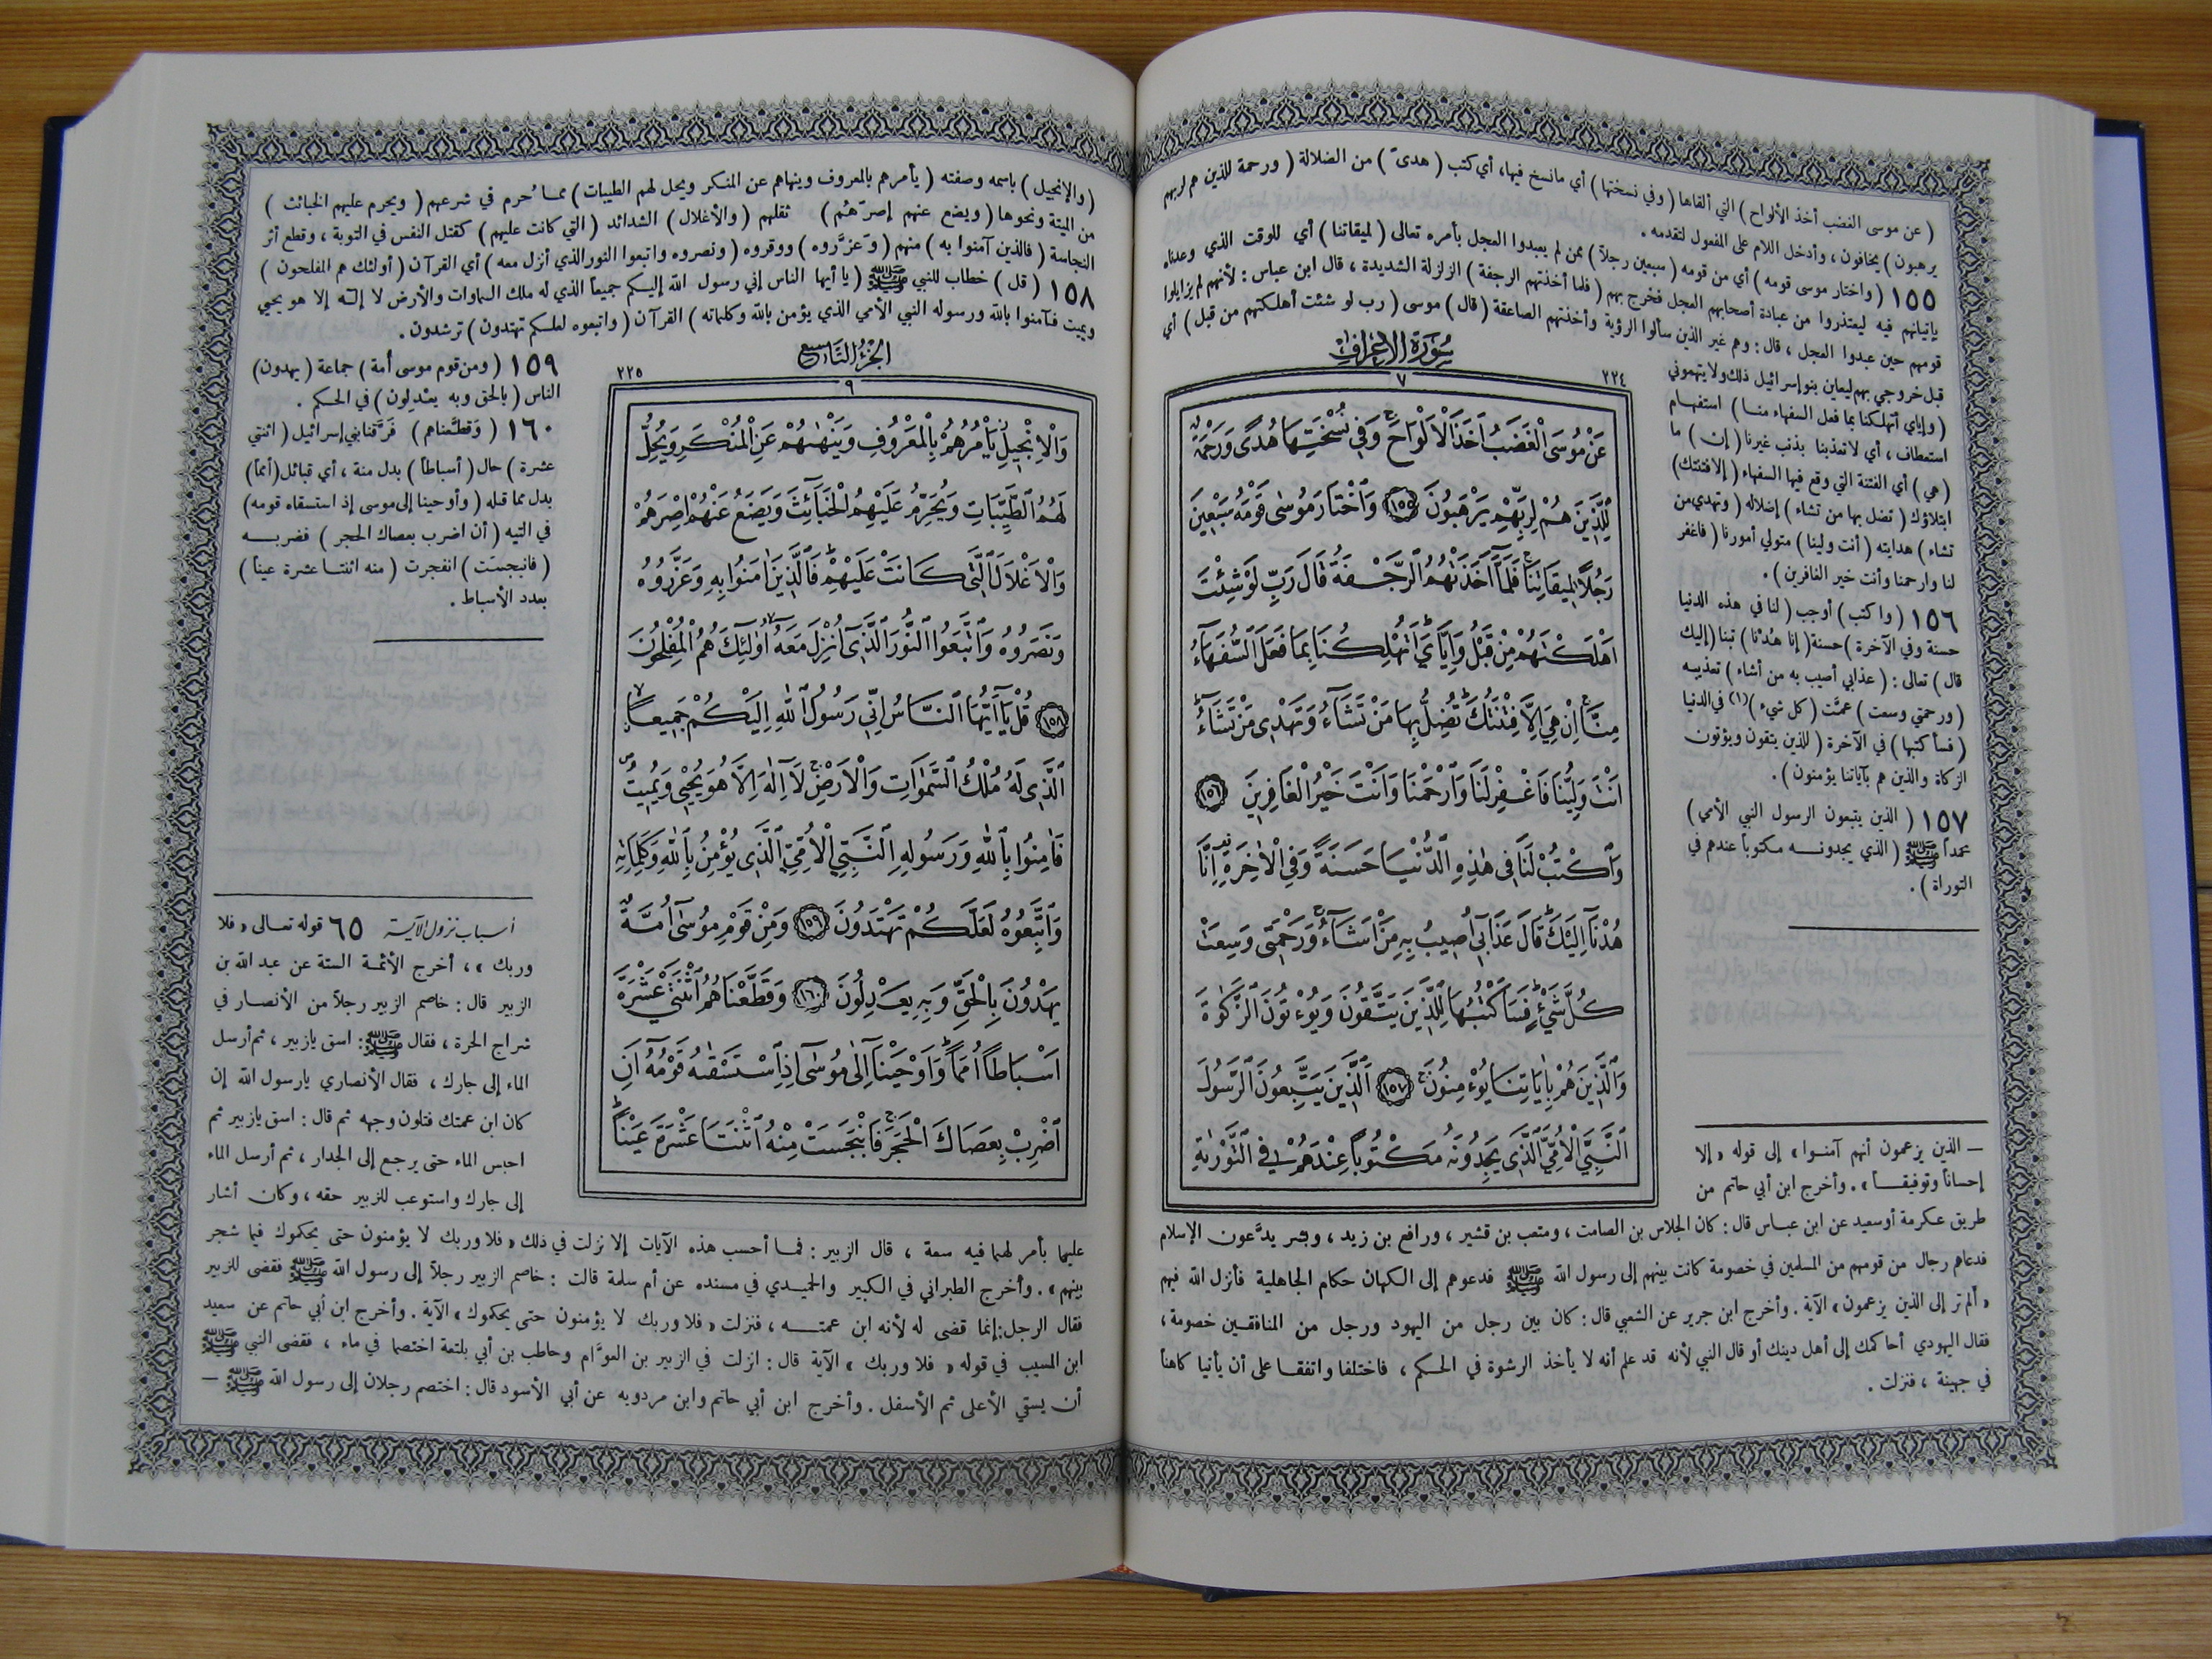 ( عن موسى الغضب أخذ الألواح ) التي ألقاها ( وفي نسختها ) أي مانسخ فيها، أي كتب ( هدىً ) من الضلالة ( ورحمة للذين هم لربهم
يرهبون ) يخافون ، وأدخل اللام على المفعول لتقدمه .
١٥٥ ( واختار موسى قومه ) أي من قومه ( سبعين رجلاً ) ممن لم يعبدوا العجل بأمره تعالى ( لميقاتنا ) أي للوقت الذي وعدناه
بإتيانهم فيه ليعتذروا من عبادة أصحابهم العجل فخرج بهم ( فلما أخذتهم الرجفة ) الزلزلة الشديدة ، قال ابن عباس : لأنهم لم يزايلوا
قومهم حين عبدوا العجل ، قال : وهم غير الذين سألوا الرؤية وأخذتهم الصاعقة ( قال ) موسى ( رب لو شئت أهلكتهم من قبل ) أي
قبل خروجي بهم ليعاين بنو إسرائيل ذلك ولا يتهموني
( وإياي أتهلكنا بما فعل السفهاء منا ) استفهام
استعطاف ، أي لا تعذبنا بذنب غيرنا ( إن ) ما
( هي ) أي الفتنة التي وقع فيها السفهاء ( إلا فتنتك )
ابتلاؤك ( تضل بها من تشاء ) إضلاله ( وتهدي من
تشاء ) هدايته ( أنت ولينا ) متولي أمورنا ( فاغفر
لنا وارحمنا وأنت خير الغافرين ) .
١٥٦ ( واكتب ) أوجب ( لنا في هذه الدنيا
حسنة وفي الآخرة ) حسنة ( إنا هُدْنا ) تبنا ( إليك
قال ) تعالى : ( عذابي أصيب به من أشاء ) تعذيبه
( ورحمتي وسعت ) عمَّت ( كل شيء )(١) في الدنيا
( فسأكتبها ) في الآخرة ( للذين يتقون ويؤتون
الزكاة والذين هم بآياتنا يؤمنون ) .
١٥٧ ( الذين يتبعون الرسول النبي الأمي )
محمداً ﷺ ( الذي يجدونه مكتوباً عندهم في
التوراة ) .
سُورَةُ الْأَعْرَافِ
٧
٢٢٤
عَنْ مُوسَى الْغَضَبُ أَخَذَ الْأَلْوَاحَ وَفِي نُسْخَتِهَا هُدًى وَرَحْمَةٌ
لِلَّذِينَ هُمْ لِرَبِّهِمْ يَرْهَبُونَ ١٥٥ وَاخْتَارَ مُوسٰى قَوْمَهُ سَبْعِينَ
رَجُلًا لِمِيقَاتِنَا فَلَمَّا أَخَذَتْهُمُ الرَّجْفَةُ قَالَ رَبِّ لَوْ شِئْتَ
أَهْلَكْتَهُمْ مِنْ قَبْلُ وَإِيَّايَ أَتُهْلِكُنَا بِمَا فَعَلَ السُّفَهَاءُ
مِنَّا إِنْ هِيَ إِلَّا فِتْنَتُكَ تُضِلُّ بِهَا مَنْ تَشَاءُ وَتَهْدِي مَنْ تَشَاءُ
أَنْتَ وَلِيُّنَا فَاغْفِرْ لَنَا وَارْحَمْنَا وَأَنْتَ خَيْرُ الْغَافِرِينَ ١٥٦
وَاكْتُبْ لَنَا فِي هٰذِهِ الدُّنْيَا حَسَنَةً وَفِي الْآخِرَةِ إِنَّا
هُدْنَا إِلَيْكَ قَالَ عَذَابِي أُصِيبُ بِهِ مَنْ أَشَاءُ وَرَحْمَتِي وَسِعَتْ
كُلَّ شَيْءٍ فَسَأَكْتُبُهَا لِلَّذِينَ يَتَّقُونَ وَيُؤْتُونَ الزَّكٰوةَ
وَالَّذِينَ هُمْ بِآيَاتِنَا يُؤْمِنُونَ ١٥٧ الَّذِينَ يَتَّبِعُونَ الرَّسُولَ
النَّبِيَّ الْأُمِّيَّ الَّذِي يَجِدُونَهُ مَكْتُوبًا عِنْدَهُمْ فِي التَّوْرٰيةِ
— الذين يزعمون أنهم آمنوا » إلى قوله « إلا
إحساناً وتوفيقاً » . وأخرج ابن أبي حاتم من
طريق عكرمة أو سعيد عن ابن عباس قال : كان الجلاس بن الصامت ، ومتعب بن قشير ، ورافع بن زيد ، وبشر يدَّعون الإسلام
فدعاهم رجال من قومهم من المسلمين في خصومة كانت بينهم إلى رسول الله ﷺ فدعوهم إلى الكهان حكام الجاهلية فأنزل الله فيهم
« ألم تر إلى الذين يزعمون » الآية . وأخرج ابن جرير عن الشعبي قال : كان بين رجل من اليهود ورجل من المنافقين خصومة ،
فقال اليهودي أحاكمك إلى أهل دينك أو قال النبي لأنه قد علم أنه لا يأخذ الرشوة في الحكم ، فاختلفا واتفقا على أن يأتيا كاهناً
في جهينة ، فنزلت .
( والإنجيل ) باسمه وصفته ( يأمرهم بالمعروف وينهاهم عن المنكر ويحل لهم الطيبات ) مما حُرم في شرعهم ( ويحرم عليهم الخبائث )
من الميتة ونحوها ( ويضع عنهم إصرَهُم ) ثقلهم ( والأغلال ) الشدائد ( التي كانت عليهم ) كقتل النفس في التوبة ، وقطع أثر
النجاسة ( فالذين آمنوا به ) منهم ( وَعزَّروه ) ووقروه ( ونصروه واتبعوا النور الذي أنزل معه ) أي القرآن ( أولئك هم المفلحون )
١٥٨ ( قل ) خطاب للنبي ﷺ ( يا أيها الناس إني رسول الله إليكم جميعاً الذي له ملك السماوات والأرض لا إله إلا هو يحيي
ويميت فآمنوا بالله ورسوله النبي الأمي الذي يؤمن بالله وكلماته ) القرآن ( واتبعوه لعلكم تهتدون ) ترشدون .
١٥٩ ( ومن قوم موسى أمة ) جماعة ( يهدون)
الناس ( بالحق وبه يعْدلون ) في الحكم .
١٦٠ ( وَقطَّعناهم ) فَرَّقنا بني إسرائيل ( اثنتي
عشرة ) حال ( أسباطاً ) بدل منة ، أي قبائل (أمماً)
بدل مما قبله ( وأوحينا إلى موسى إذ استسقاه قومه)
في التيه ( أن اضرب بعصاك الحجر ) فضربه
( فانبجست ) انفجرت ( منه اثنتا عشرة عيناً )
بعدد الأسباط .
الجُزْءُ التَّاسِعُ
٩
٢٢٥
وَالْإِنْجِيلِ يَأْمُرُهُمْ بِالْمَعْرُوفِ وَيَنْهٰيهُمْ عَنِ الْمُنْكَرِ وَيُحِلُّ
لَهُمُ الطَّيِّبَاتِ وَيُحَرِّمُ عَلَيْهِمُ الْخَبَائِثَ وَيَضَعُ عَنْهُمْ إِصْرَهُمْ
وَالْأَغْلَالَ الَّتِي كَانَتْ عَلَيْهِمْ فَالَّذِينَ آمَنُوا بِهِ وَعَزَّرُوهُ
وَنَصَرُوهُ وَاتَّبَعُوا النُّورَ الَّذِي أُنْزِلَ مَعَهُ أُولٰئِكَ هُمُ الْمُفْلِحُونَ
١٥٨ قُلْ يَا أَيُّهَا النَّاسُ إِنِّي رَسُولُ اللهِ إِلَيْكُمْ جَمِيعًا
الَّذِي لَهُ مُلْكُ السَّمٰوَاتِ وَالْأَرْضِ لَا إِلٰهَ إِلَّا هُوَ يُحْيِي وَيُمِيتُ
فَآمِنُوا بِاللهِ وَرَسُولِهِ النَّبِيِّ الْأُمِّيِّ الَّذِي يُؤْمِنُ بِاللهِ وَكَلِمَاتِهِ
وَاتَّبِعُوهُ لَعَلَّكُمْ تَهْتَدُونَ ١٥٩ وَمِنْ قَوْمِ مُوسٰى أُمَّةٌ
يَهْدُونَ بِالْحَقِّ وَبِهِ يَعْدِلُونَ ١٦٠ وَقَطَّعْنَاهُمُ اثْنَتَيْ عَشْرَةَ
أَسْبَاطًا أُمَمًا وَأَوْحَيْنَا إِلٰى مُوسٰى إِذِ اسْتَسْقٰيهُ قَوْمُهُ أَنِ
اضْرِبْ بِعَصَاكَ الْحَجَرَ فَانْبَجَسَتْ مِنْهُ اثْنَتَا عَشْرَةَ عَيْنًا
أسباب نزول الآية ٦٥ قوله تعالى « فلا
وربك » ، أخرج الأئمة الستة عن عبد الله بن
الزبير قال : خاصم الزبير رجلاً من الأنصار في
شراج الحرة ، فقال ﷺ : اسق يازبير ، ثم أرسل
الماء إلى جارك ، فقال الأنصاري يارسول الله إن
كان ابن عمتك فتلون وجهه ثم قال : اسق يازبير ثم
احبس الماء حتى يرجع إلى الجدار ، ثم أرسل الماء
إلى جارك واستوعب للزبير حقه ، وكان أشار
عليهما بأمر لهما فيه سعة ، قال الزبير : فما أحسب هذه الآيات إلا نزلت في ذلك « فلا وربك لا يؤمنون حتى يحكموك فيما شجر
بينهم » . وأخرج الطبراني في الكبير والحميدي في مسنده عن أم سلمة قالت : خاصم الزبير رجلاً إلى رسول الله ﷺ فقضى للزبير
فقال الرجل:إنما قضى له لأنه ابن عمته ، فنزلت « فلا وربك لا يؤمنون حتى يحكموك » الآية . وأخرج ابن أبي حاتم عن سعيد
ابن المسيب في قوله « فلا وربك » الآية قال : انزلت في الزبير بن العوَّام وحاطب بن أبي بلتعة اختصما في ماء ، فقضى النبي ﷺ
أن يسقي الأعلى ثم الأسفل . وأخرج ابن أبي حاتم وابن مردويه عن أبي الأسود قال : اختصم رجلان إلى رسول الله ﷺ —